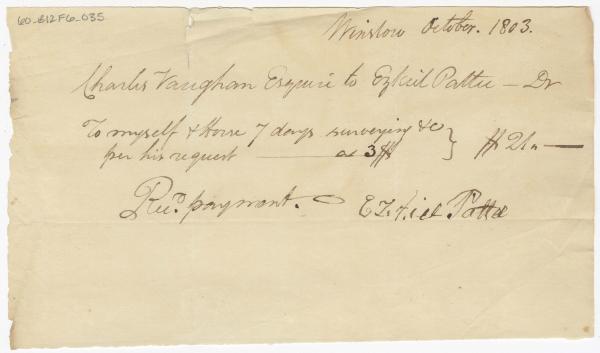 60_B12F6_035
Winslow October. 1803.
Charles Vaughan Esquire to Ezkiel Pattee — Dr
To myself & Horse 7 days surveying &c
per his request — a 3$ } $ 21 „ —
Rec.d payment.
Ezekiel Pattee